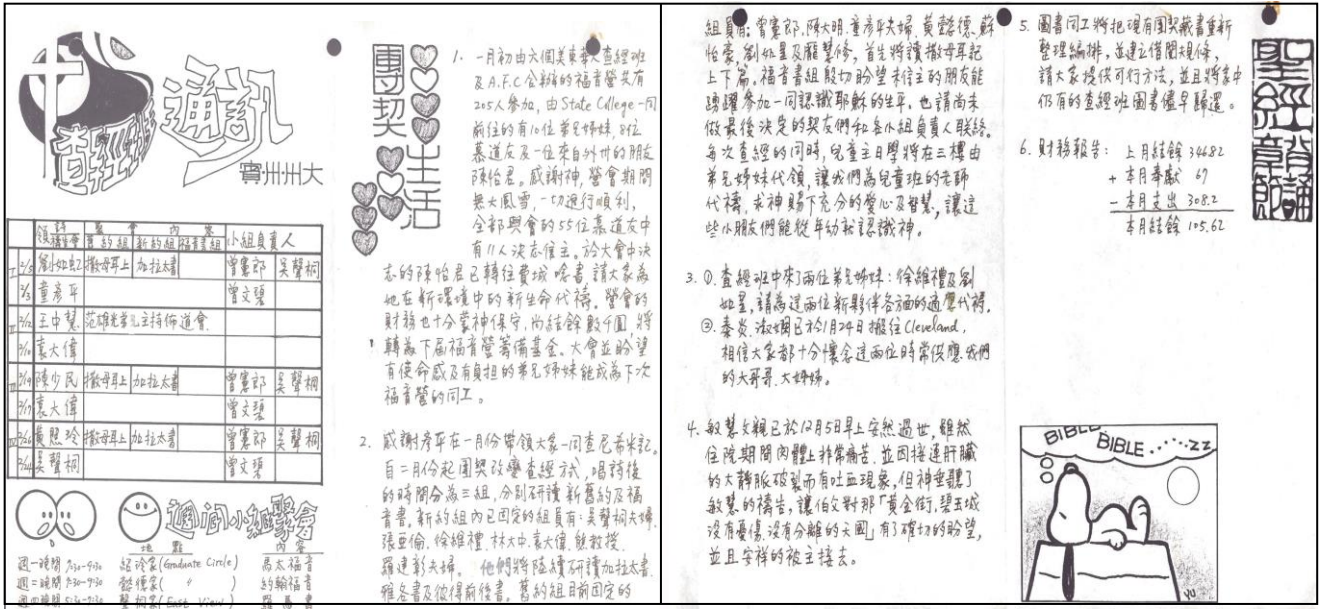 查經班
通訊
賓州州大
領詩 聚會內容 小組負責人
福音會 舊約組 新約組 福音書組
I 2/5 劉如虹 撒母耳上 加拉太書 曾憲郎 吳聲桐
2/3 童彥平 曾文碧
II 2/12 王中慧 范雄光弟兄主持佈道會
2/10 袁大偉
III 2/19 陳少民 撒母耳上 加拉太書 曾憲郎 吳聲桐
2/17 袁大偉 曾文碧
IV 2/26 黃照玲 撒母耳上 加拉太書 曾憲郎 吳聲桐
2/24 吳聲桐 曾文碧
週間小組聚會
地點 內容
週一晚間 7:30-9:30 紹玲家(Graduate Circle) 馬太福音
週二晚間 7:30-9:30 懿德家( 〃 ) 約翰福音
週四晚間 5:30-7:30 聲桐家(East View) 羅馬書
團契生活
1. 一月初由六個美東華人查經班
及A.F.C合辦的福音營共有
205人參加,由State College一同
前往的有10位弟兄姊妹,8位
慕道友及一位來自外州的朋友
陳怡君。感謝神,營會期間
無大風雪,一切進行順利,
全部與會的55位慕道友中
有11人決志信主。於大會中決
志的陳怡君已轉往費城唸書,請大家為
她在新環境中的新生命代禱。營會的
財務也十分蒙神保守,尚結餘數千圓,將
轉為下屆福音營籌備基金。大會並盼望
有使命感及有負担的弟兄姊妹能成為下次
福音營的同工。
2. 感謝彥平在一月份帶領大家一同查尼希米記。
自二月份起團契改變查經方式,唱詩後
的時間分為三組,分別研讀新舊約及福
音書,新約組內已固定的組員有:吳聲桐夫婦,
張亞倫,徐維禮,林大中,袁大偉,熊教授,
羅達彰夫婦。他們將陸續研讀加拉太書,
雅各書及彼得前後書。舊約組目前固定的
組員有:曾憲郎,陳大明,童彥平夫婦,黃懿德,蘇
怡豪,劉如星及龐慧修,首先將讀撒母耳記
上下篇,福音書組殷切盼望未信主的朋友能
踴躍參加一同認識耶穌的生平,也請尚未
做最後決定的契友們和各小組負責人聯絡。
每次查經的同時,兒童主日學將在三樓由
弟兄姊妹代領,讓我們為兒童班的老師
代禱,求神賜下充分的愛心及智慧,讓這
些小朋友們能從年幼就認識神。
3. ①. 查經班中來了兩位弟兄姊妹:徐維禮及劉
如星,請為這兩位新夥伴各方面的適應代禱。
②. 秦炎,淑嫻已於1月24日搬往Cleveland,
相信大家都十分懷念這兩位時常供應我們
的大哥哥,大姊姊。
4. 敏慧父親已於12月5日早上安然過世,雖然
住院期間肉體上非常痛苦,並因接連肝臟
的大靜脈破裂而有吐血現象,但神垂聽了
敏慧的禱告,讓伯父對那「黃金街,碧玉城
沒有憂傷,沒有分離的天國」有了確切的盼望,
並且安祥的被主接去。
5. 圖書同工將把現有團契藏書重新
整理編排,並建立借閱規條,
請大家提供可行方法,並且將家中
仍有的查經班圖書儘早歸還。
6. 財務報告: 上月結餘 346.82
+ 本月奉獻 67
- 本月支出 308.2
本月結餘 105.62
聖經背誦章節
BIBLE
BIBLE.....zz
YU